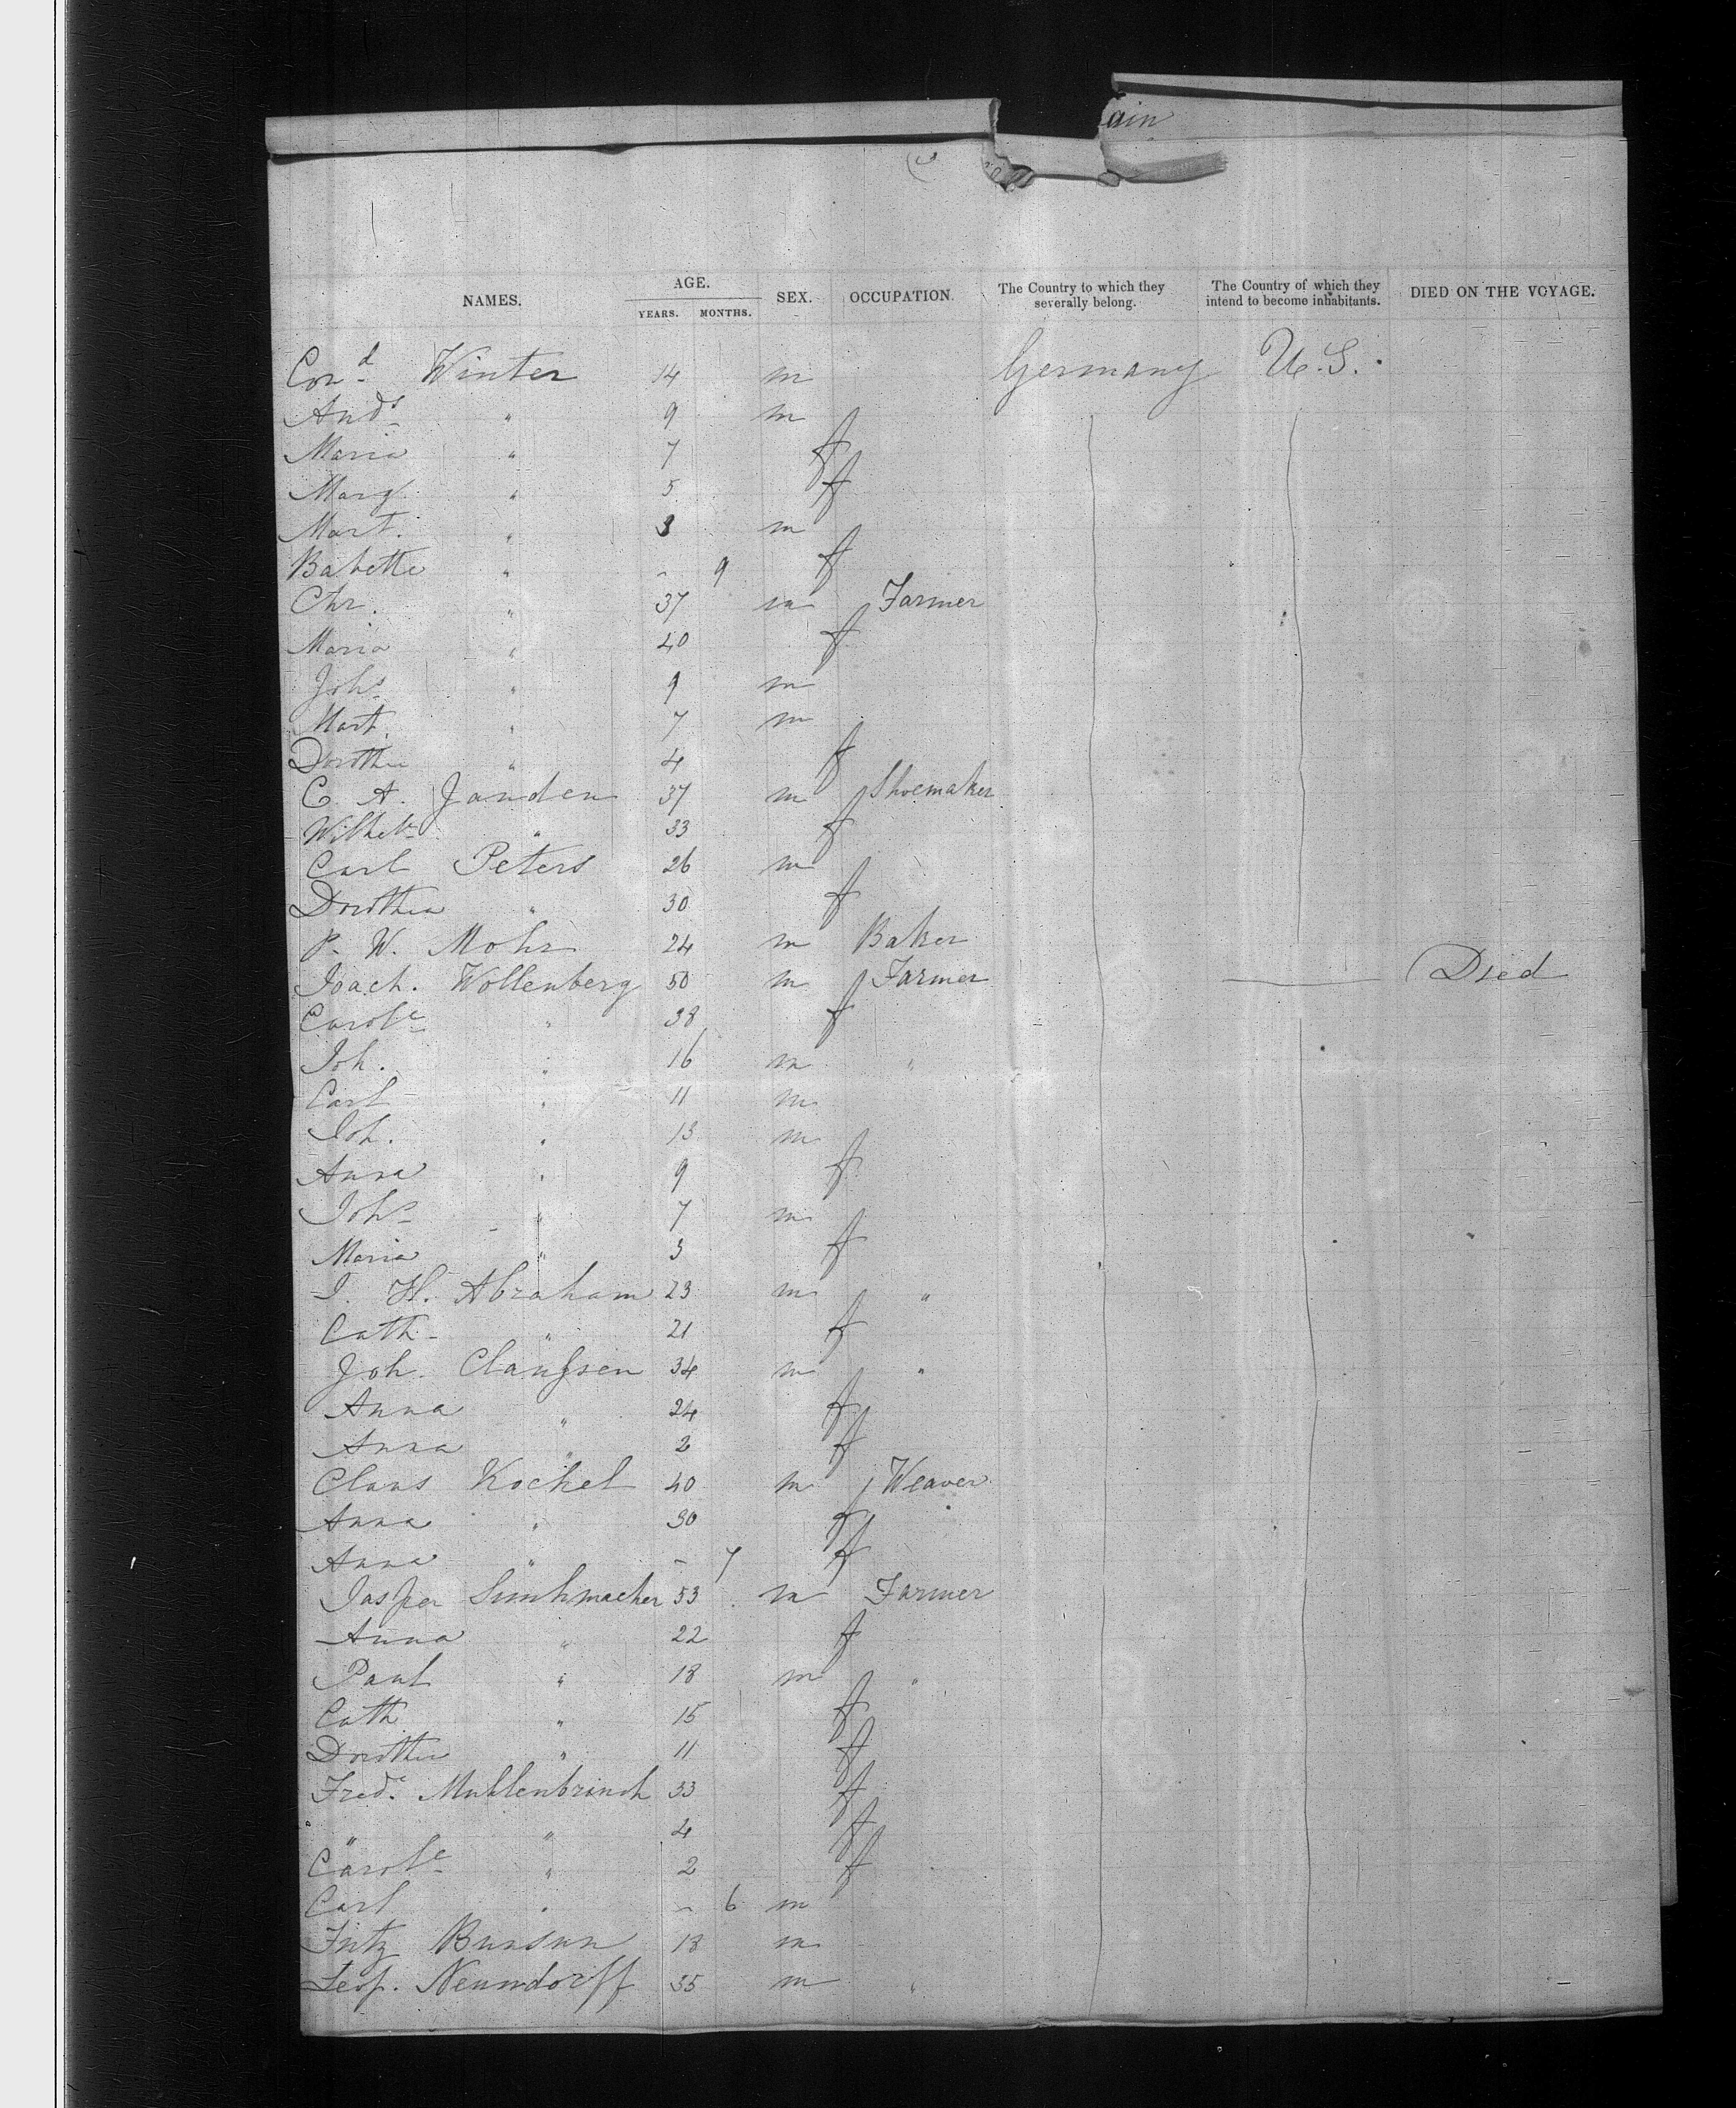 ain
NAMES. AGE. YEARS. MONTHS. SEX. OCCUPATION. The Country to which they severally belong. The Country of which they intend to become inhabitants. DIED ON THE VOYAGE.
Cond Winter 14 m Germany U.S.
Ands " 9 m
Maria " 7 f
Marg. " 5 f
Mart. " 3 m
Babette " - 9 f
Chr. " 37 m Farmer
Maria " 40 f
Johs " 9 m
Mart. " 7 m
Dorothe " 4 f
C. A. Janden 37 m Shoemaker
Wilhe " 33 f
Carl Peters 26 m
Dorothea " 30 f
P. W. Mohr 24 m Baker
Joach. Wollenberg 50 m Farmer Died
Carole " 38 f
Joh. " 16 m "
Carl " 11 m
Joh. " 13 m
Anna " 9 f
Johs " 7 m
Maria " 3 f
J. H. Abraham 23 m "
Cath. " 21 f
Joh. Claussen 34 m "
Anna " 24 f
Anna " 2 f
Claus Kochel 40 m Weaver
Anna " 30 f
Anna " - 7 f
Jasper 53 m Farmer
Anna " 22 f
Paul " 18 m "
Cath " 15 f
Dorothe " 11 f
Frede Muhlenbrinck 33 f
" " 4 f
Carole " 2 f
Carl " - 6 m
Fritz Bunsun 18 m
Leop. Neundorff 35 m "